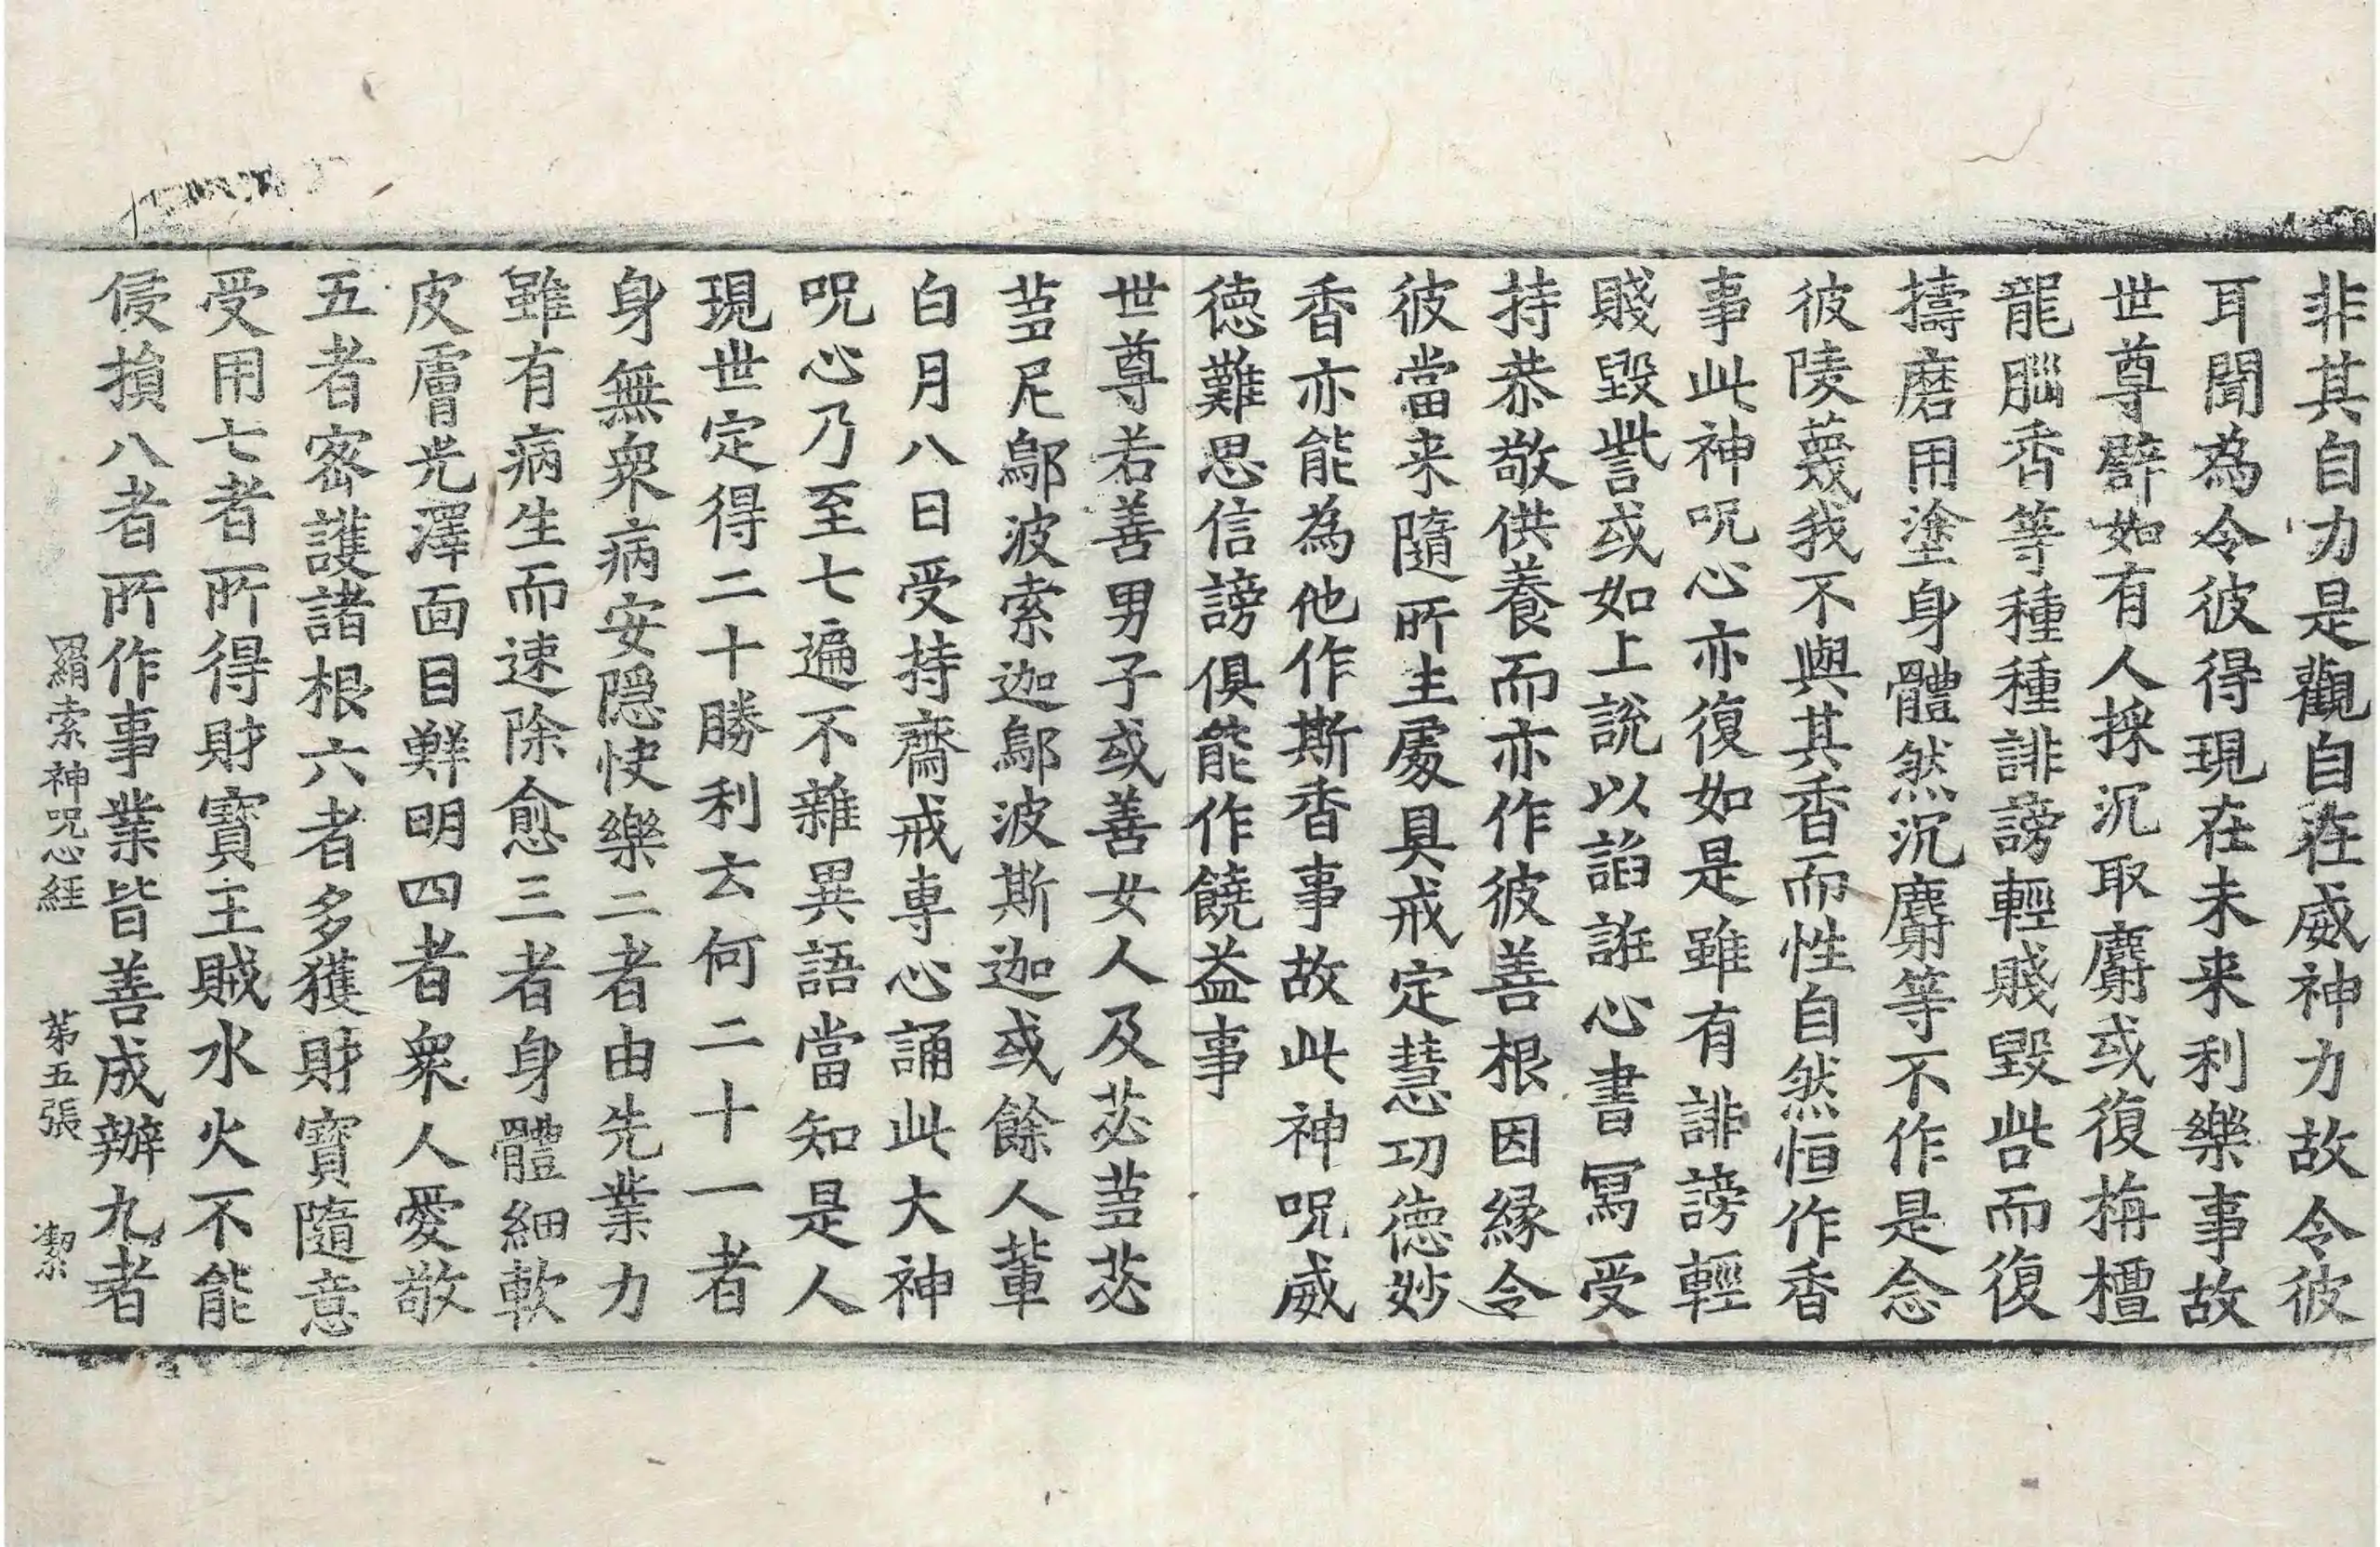 非其自力是觀自在威神力故令彼
耳聞為令彼得現在未来利樂事故
世尊辟如有人採沉取麝或復栴檀
龍腦香等種種誹謗輕賤毀呰而復
擣磨用塗身體然沉麝等不作是念
彼陵蔑我不與其香而性自然恒作香
事此神呪心亦復如是雖有誹謗輕
賤毀訾或如上說以諂誑心書冩受
持恭敬供養而亦作彼善根因緣令
彼當来隨所生處具戒定慧功徳妙
香亦能為他作斯香事故此神呪威
徳難思信謗俱能作饒益事
世尊若善男子或善女人及苾蒭苾
蒭尼鄔波索迦鄔波斯迦或餘人輩
白月八日受持齋戒專心誦此大神
呪心乃至七遍不雜異語當知是人
現世定得二十勝利云何二十一者
身無衆病安隠快樂二者由先業力
雖有病生而速除愈三者身體細軟
皮膚光澤面目鮮明四者衆人愛敬
五者密護諸根六者多獲財寳隨意
受用七者所得財寳王賊水火不能
侵損八者所作事業皆善成辦九者
羂索神呪心経 苐五張 潔